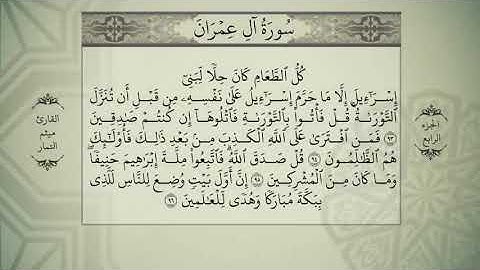 سُورَةُ آلِ عِمۡرَانَ
كُلُّ ٱلطَّعَامِ كَانَ حِلّٗا لِّبَنِيٓ
إِسۡرَٰٓءِيلَ إِلَّا مَا حَرَّمَ إِسۡرَٰٓءِيلُ عَلَىٰ نَفۡسِهِۦ مِن قَبۡلِ أَن تُنَزَّلَ
ٱلتَّوۡرَىٰةُۚ قُلۡ فَأۡتُواْ بِٱلتَّوۡرَىٰةِ فَٱتۡلُوهَآ إِن كُنتُمۡ صَٰدِقِينَ
٩٣ فَمَنِ ٱفۡتَرَىٰ عَلَى ٱللَّهِ ٱلۡكَذِبَ مِنۢ بَعۡدِ ذَٰلِكَ فَأُوْلَٰٓئِكَ
هُمُ ٱلظَّٰلِمُونَ ٩٤ قُلۡ صَدَقَ ٱللَّهُۗ فَٱتَّبِعُواْ مِلَّةَ إِبۡرَٰهِيمَ حَنِيفٗاۖ
وَمَا كَانَ مِنَ ٱلۡمُشۡرِكِينَ ٩٥ إِنَّ أَوَّلَ بَيۡتٖ وُضِعَ لِلنَّاسِ لَلَّذِي
بِبَكَّةَ مُبَارَكٗا وَهُدٗى لِّلۡعَٰلَمِينَ ٩٦
الجزء
الرابع
القارئ
ميثم
التمار